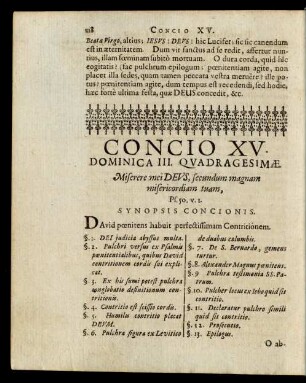 218 CONCIO XV.
Beata Virgo, ultius; JESUS; DEUS: hic Lucifer: sic sic canendum
est in æternitatem. Dum vir sanctus ad se redit, affertur nun-
tius, illam feminam subitò mortuam. O dura corda, quid hîc
cogitatis? fac pulchrum epilogum: pœnitentiam agite, non
placet illa sedes, quam tamen peccata vestra merentur? ille po-
tius? pœnitentiam agite, dum tempus est recedendi, sed hodie,
hæc fortè ultima festa, quæ DEUS concedit, &c.
CONCIO XV.
DOMINICA III. QVADRAGESIMÆ.
Miserere mei DEVS, secundùm magnam
misericordiam tuam,
Ps. 50. v. 1.
SYNOPSIS CONCIONIS.
David pœnitens habuit perfectissimam Contritionem.
§. 1. DEI judicia abyssus multa.
§. 2. Pulchri versus ex Psalmis
pœnitentialibus, quibus David
contritionem cordis sui expli-
cat.
§. 3. Ex his sumi potest pulchra
conglobatio definitionum con-
tritionis.
§. 4. Contritio est scissio cordis.
§. 5. Humilis contritio placat
DEUM.
§. 6. Pulchra figura ex Levitico
de duabus columbis.
§. 7. De S. Bernardo, gemens
turtur.
§. 8. Alexander Magnus pœnitens.
§. 9 Pulchra testimonia SS. Pa-
trum.
§. 10. Pulcher locus ex Job quid sit
contritio.
§. 11. Declaratur pulchro simili
quid sit contritio.
§. 12. Prosecutio.
§. 13. Epilogus.
O ab-